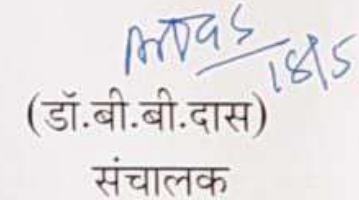 18/5
(डॉ.बी.बी.दास)
संचालक